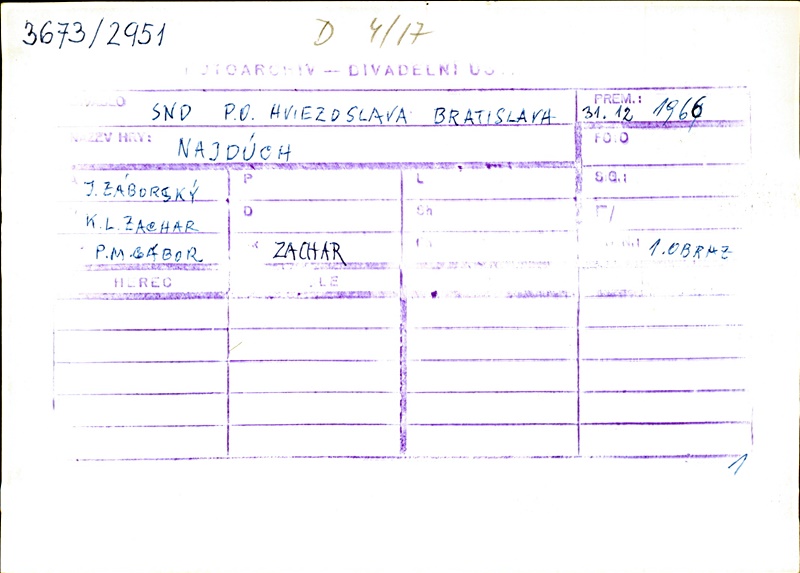 3673/2951 D 4/17
DIVADELNÍ
SND P.O. HVIEZDOSLAVA BRATISLAVA PREM.: 31. 12 1966
NÁZEV HRY: NAJDÚCH FOTO
J. ZÁBORSKÝ P L SG:
K. L. ZACHAR D Sh F/
P. M. GÁBOR K ZACHAR 1. OBRAZ
HEREC
1